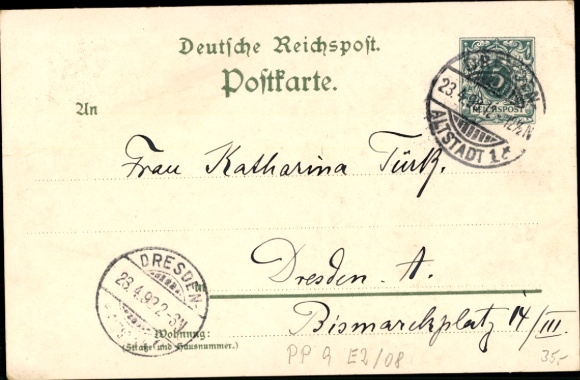 Deutsche Reichspost.
Postkarte.
An
REICHSPOST
DRESDEN
23.4.98
ALTSTADT 1
Frau Katharina Türk.
Dresden. A.
Bismarckplatz 14/III.
DRESDEN
23.4.98
Wohnung:
(Straße und Hausnummer.)
PP 9 E2/08
35,-